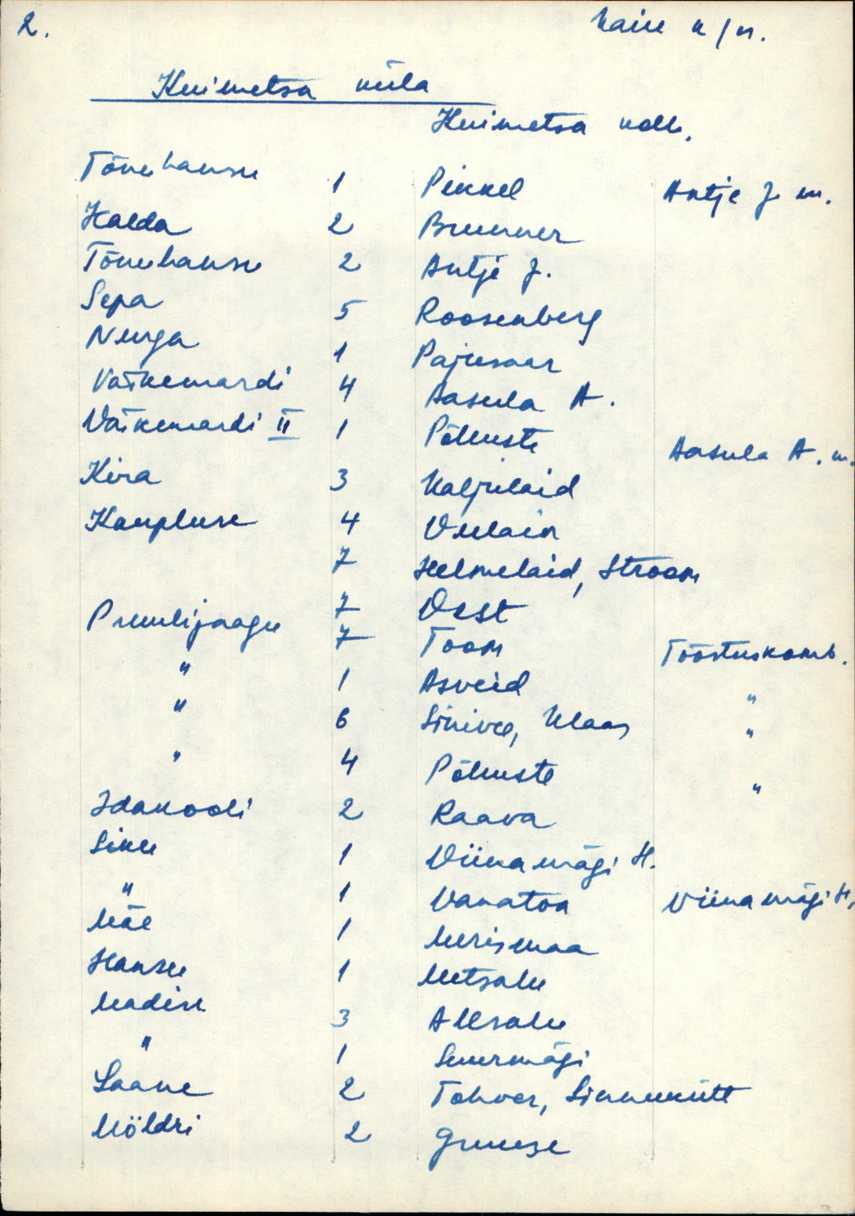 2. Kaiu k/n.
Kuimetsa küla
Kuimetsa vald.
Tõnuhansu 1 Pikkel Antje J. m.
Halda 2 Brunner
Tõnuhansu 2 Antje J.
Sepa 5 Roosenberg
Nurga 1 Pajusaar
Väikemardi 4 Aasula A.
Väikemardi II 1 Põhuste Aasula A. m.
Kira 3 Kaljulaid
Kaupluse 4 Uulain
7 Helmelaid, Stroom
Pruulijaagu 7 Osst
7 Toom Tööstuskomb.
" 1 Asveid "
" 6 Sinivee, Klaas "
" 4 Põhuste "
Idakooli 2 Raava
Siku 1 Viinamägi H.
" 1 Vanatoa Viinamägi H.
Mäe 1 Merismaa
Hansu 1 Metsalu
Madise 3 Allsalu
" 1 Suurmägi
Saane 2 Tohver, Sinnukütt
Möldri 2